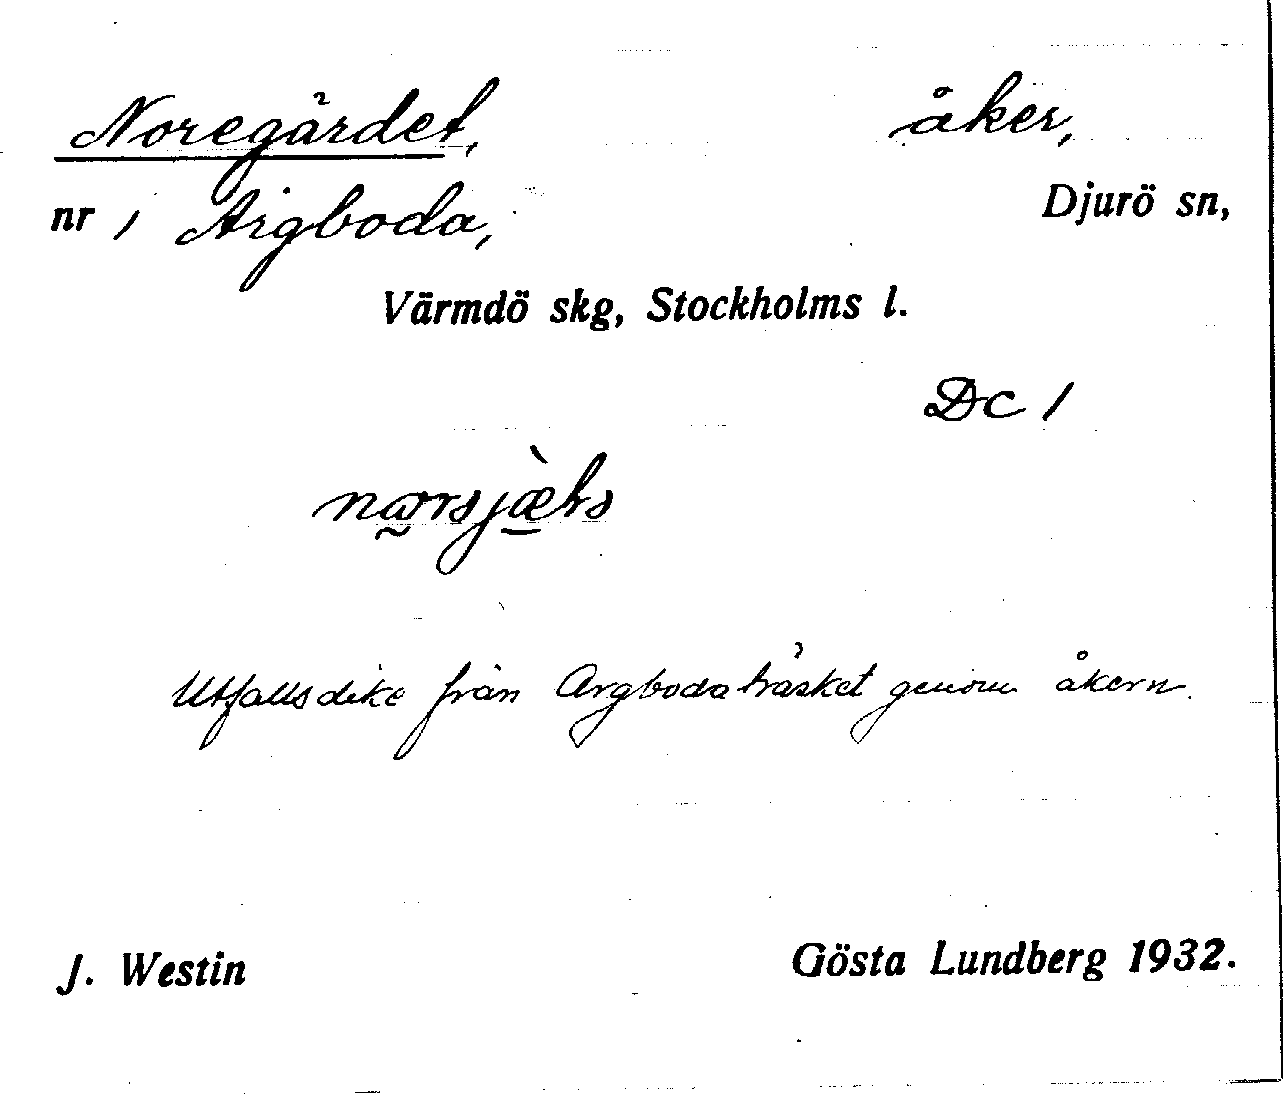 Noregärdet, åker,
nr 1 Argboda, Djurö sn,
Värmdö skg, Stockholms l.
Dc 1
Utfallsdike från Argbodaträsket genom åkern.
J. Westin Gösta Lundberg 1932.